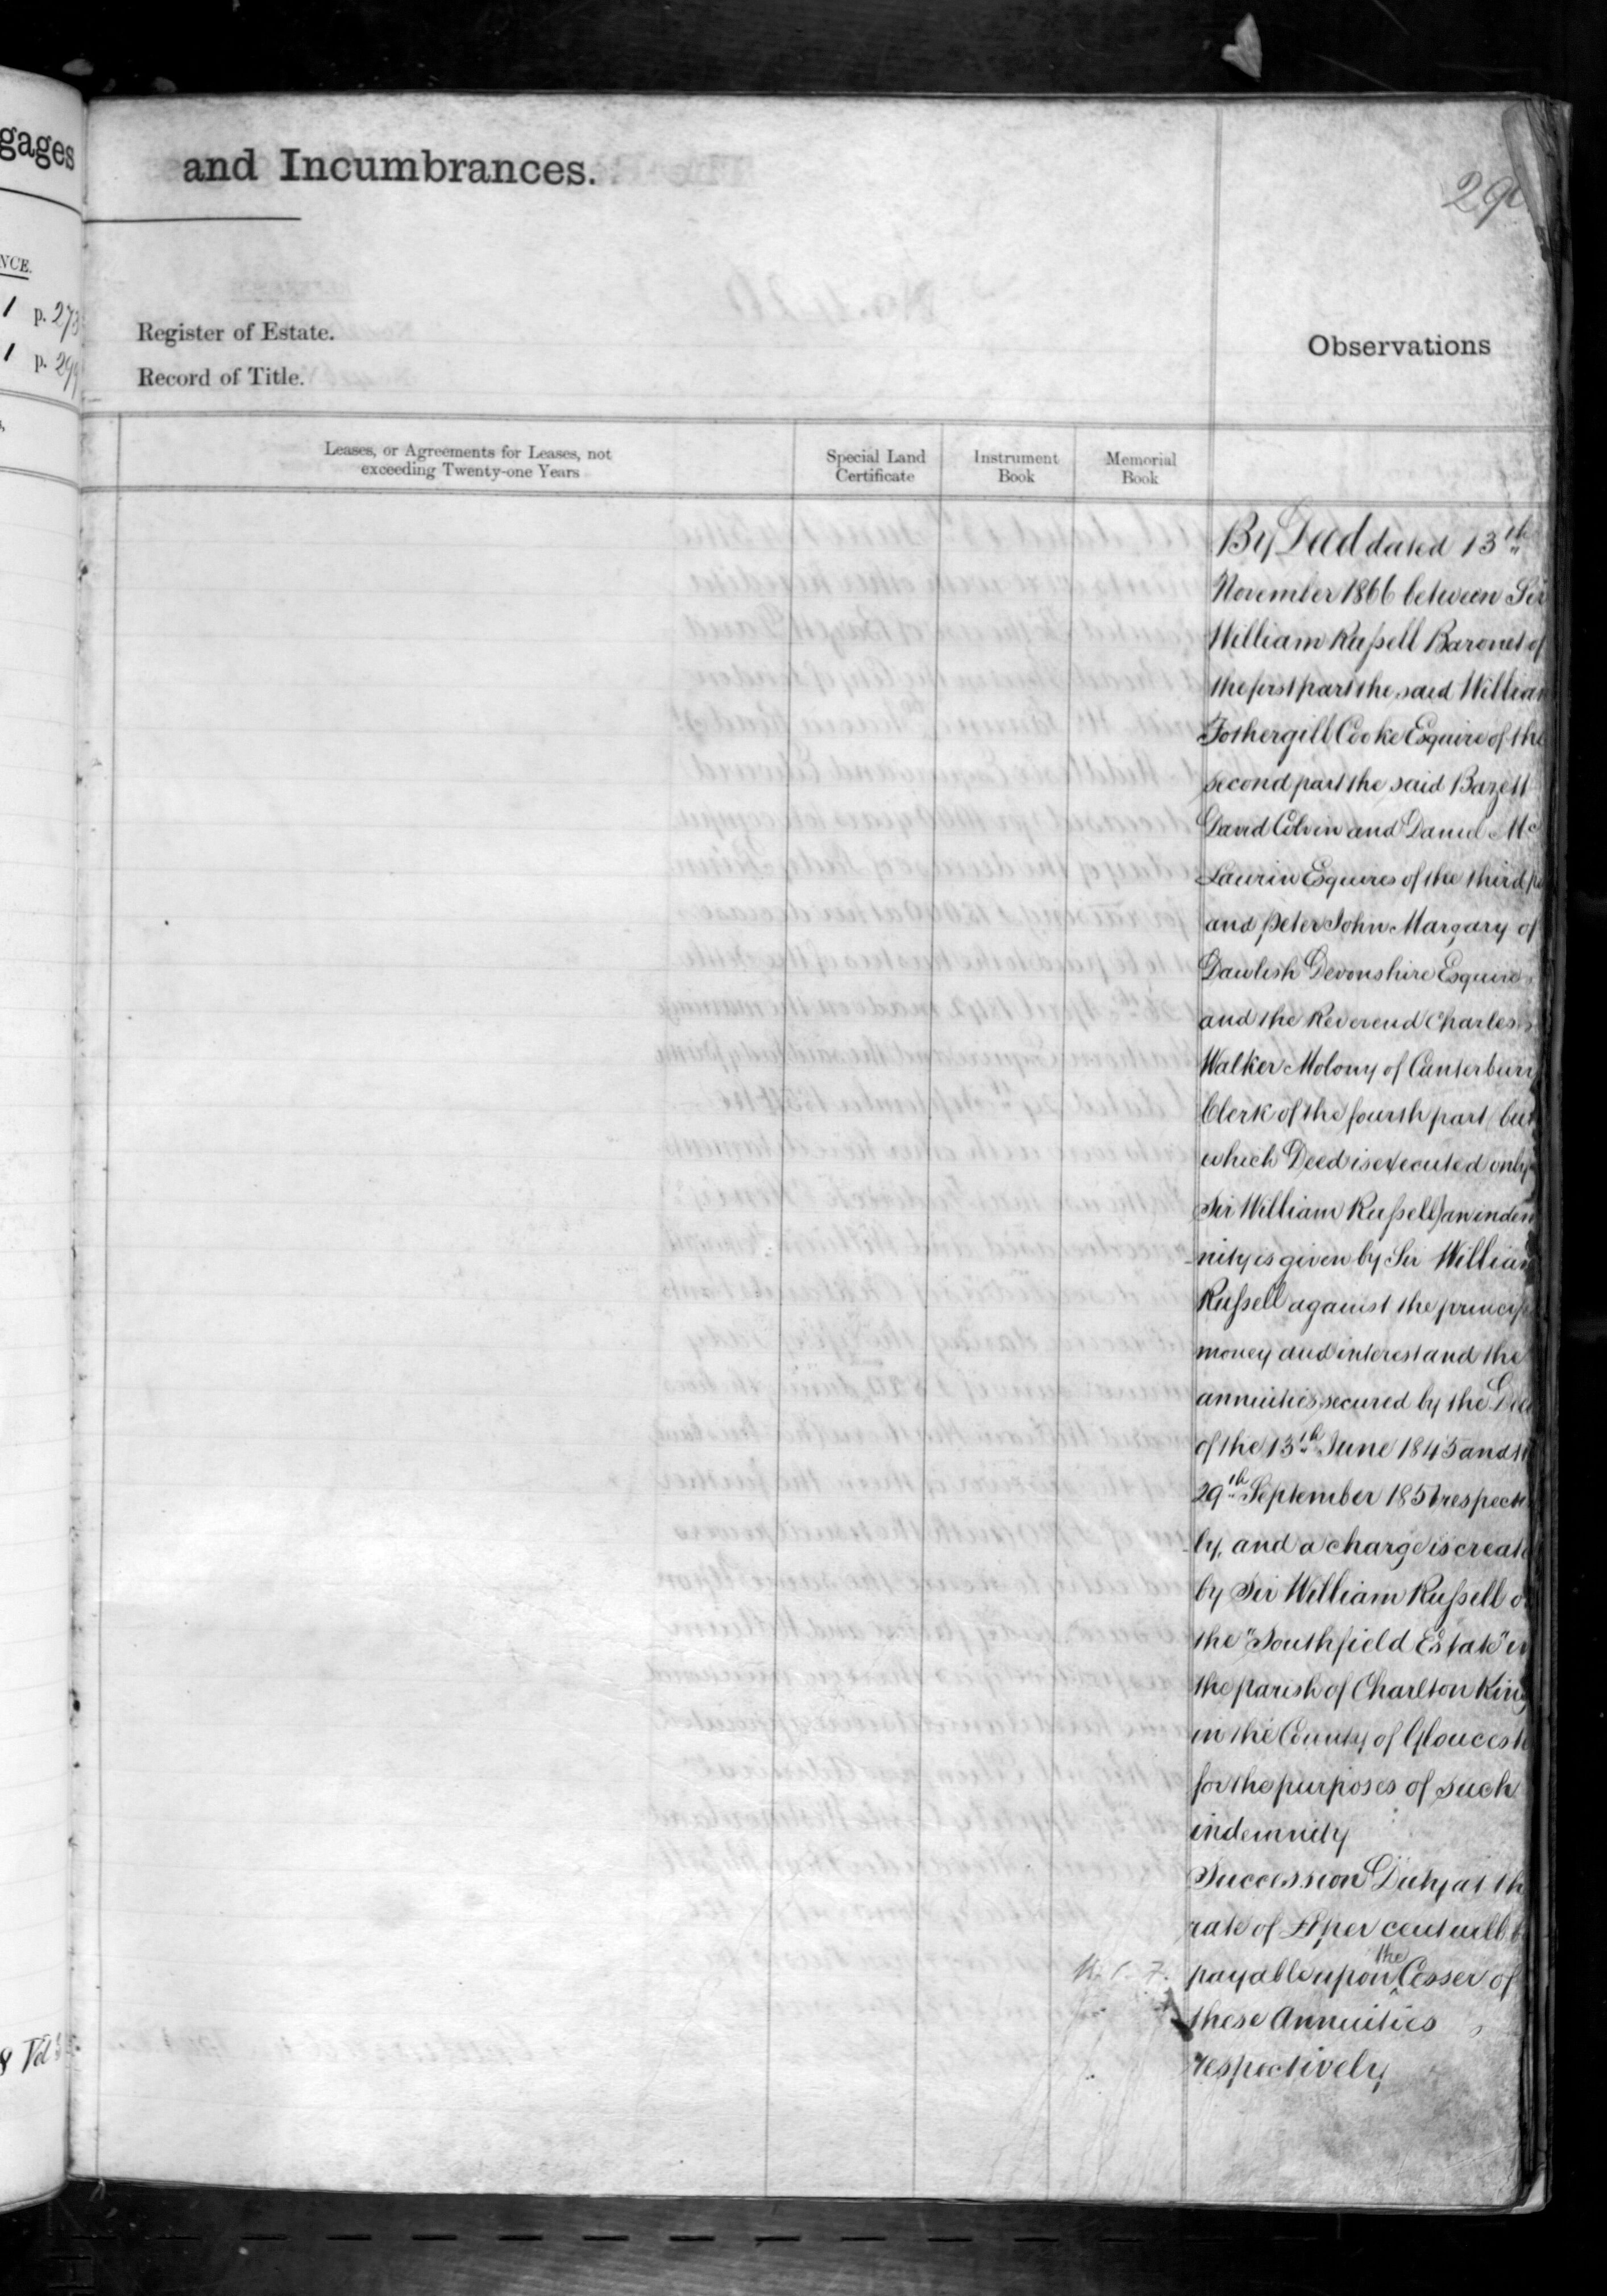 gages
and Incumbrances.
NCE.
1 p. 273
1 p. 299
Register of Estate.
Record of Title.
Observations
Leases, or Agreements for Leases, not
exceeding Twenty-one Years
Special Land
Certificate
Instrument
Book
Memorial
Book
By Deed dated 13th
November 1866 between Sir
William Russell Baronet of
the first part the said William
Fothergill Cooke Esquire of the
second part the said Bazett
David Colvin and Daniel Mc
Laurin Esquires of the third
and Peter John Margary of
Dawlish Devonshire Esquire
and the Reverend Charles
Walker Molony of Canterbury
Clerk of the fourth part (but
which Deed is executed only
Sir William Russell) an indem
nity is given by Sir William
Russell against the princip
money and interest and the
annuities secured by the Deed
of the 13th June 1845 and
29th September 185 respecti
ly, and a charge is create
by Sir William Russell o
the "Southfield Estate" in
the parish of Charlton King
in the County of Glouceste
for the purposes of such
indemnity
Succession Duty at th
rate of per cent will b
payable upon the Cesser of
these Annuities
respectively